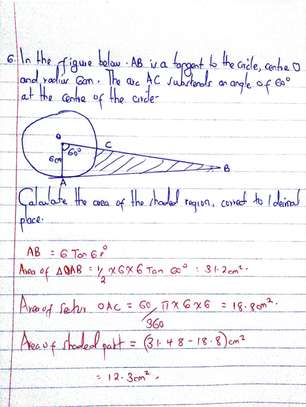 6. In the figure below. AB is a tangent to the circle, centre O
and radius 6cm. The arc AC substends an angle of 60°
at the centre of the circle.
O
60°
C
6cm
B
A
Calculate the area of the shaded region, correct to 1 decimal
place.
AB = 6 Tan 60°
Area of ΔOAB = 1/2 x 6 x 6 Tan 60° = 31.2cm².
Area of Sector OAC = 60/360 π x 6 x 6 = 18.8cm².
Area of shaded part = (31.48 - 18.8) cm²
= 12.3cm².